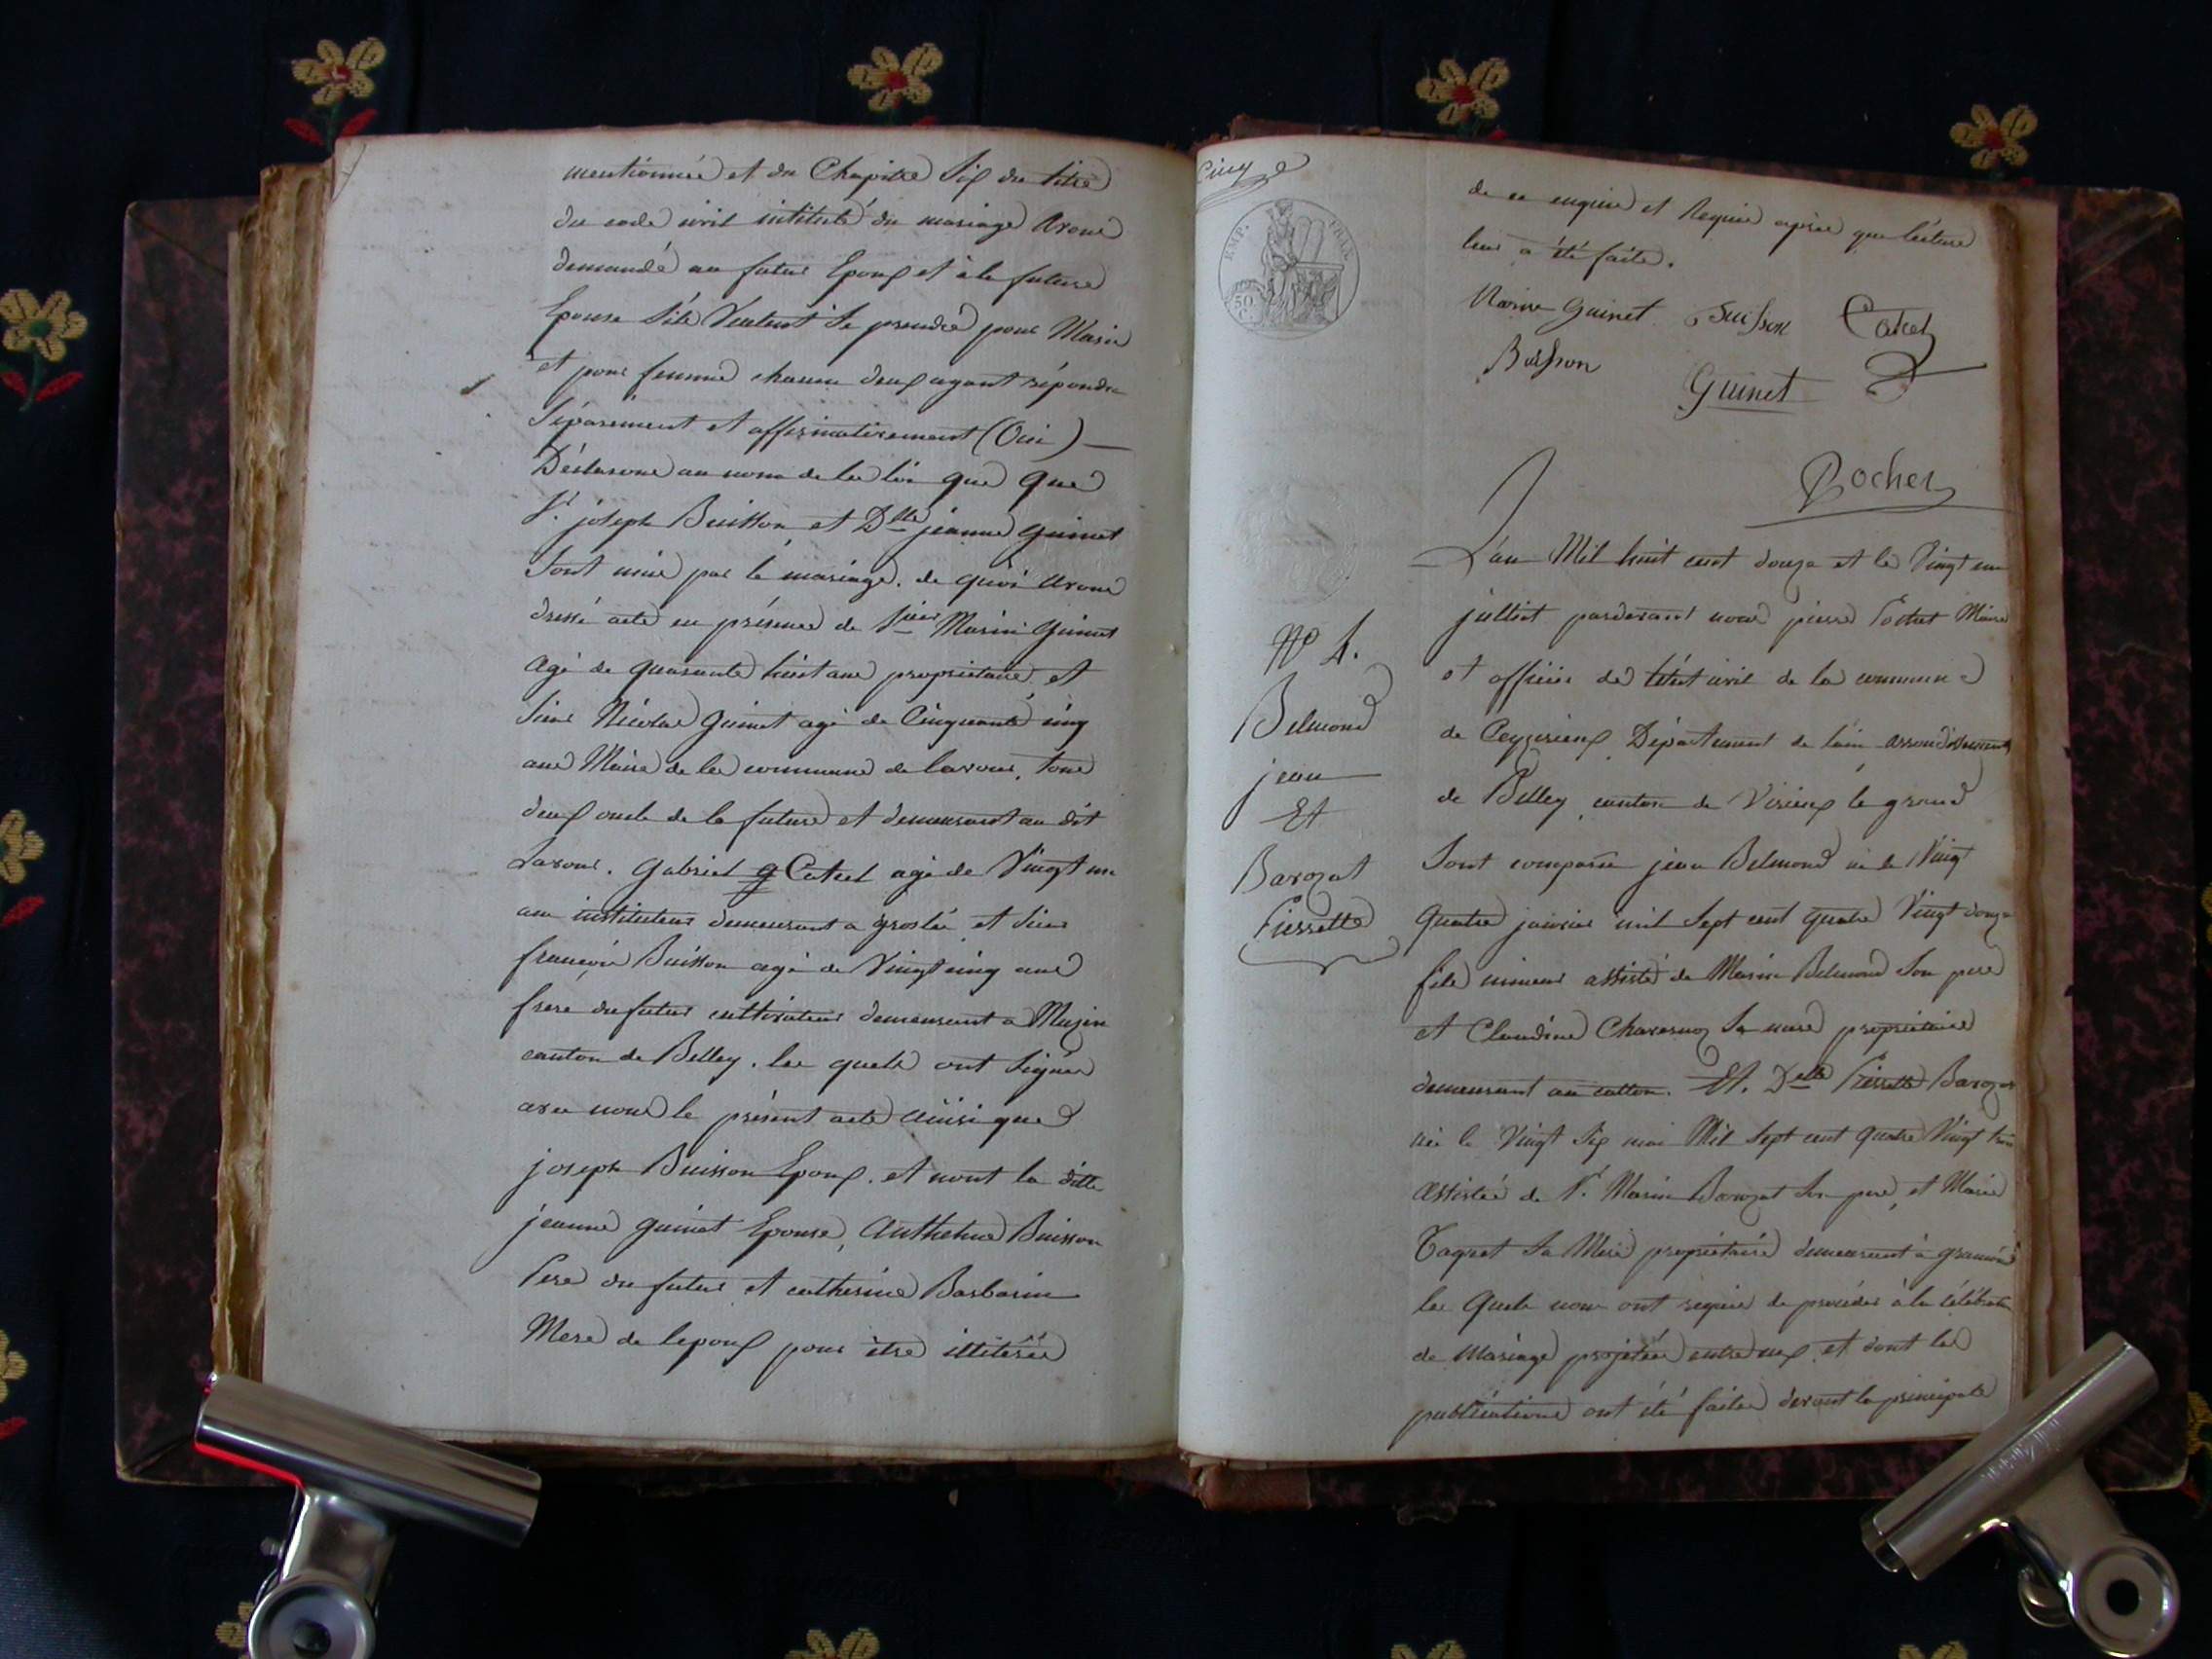 mentionnée et du Chapitre Six du titre
du code civil intitulé du mariage avons
demandé au futur Epoux et à la future
Epouse S'ils Veulent Se prendre pour Mari
et pour femme chacun deux ayant répondu
Séparément et affirmativement (Oui) —
Déclarons au nom de la loi que que
Sr. joseph Buisson et Dlle jeanne guinet
Sont unis par le mariage. de quoi avons
dressé acte en présence de Sieur Marin guinet
agé de quarante huit ans propriétaire et
Sieur Nicolas guinet agé de Cinquante cinq
ans Maire de la commune de lavour, tous
deux oncle de la future et demeurant au dit
Lavour. gabriel g Catet agé de Vingt un
ans instituteur demeurant a groslée et Sieur
françois Buisson agé de Vingt cinq ans
frere du futur cultivateur demeurant a Muzin
canton de Belley. les quels ont Signés
avec nous le présent acte ainsi que
joseph Buisson Epoux. et nont la ditte
jeanne guinet Epouse, Anthelme Buisson
Pere du futur et catherine Barbarin
Mere de lepoux pour être illitérés
Cinq
EMP. FRAN.
50 C.
de ce enquis et Requis après que lecture
leur a été faite.
Marin guinet Buisson Catet
Buisson
Guinet
Rochet
L'an Mil huit cent douze et le Vingt un
julliet pardevant nous pierre Rochet Maire
et officier de létat civil de la commune
de Ceyzerieux Département de lain arrondissement
de Belley canton de Virieux le grand
Sont comparu jean Belmond né le Vingt
Quatre janvier mil Sept cent quatre Vingt douze
fils mineur assisté de Marin Belmond Son pere
et Claudine Sa mere propriétaire
demeurant au catton. Et. Delle Pierrette Barozat
née le Vingt Six mai Mil Sept cent Quatre Vingt trois
assistée de Sr. Marin Barozat Son pere, et Marie
Sa Mere propriétaire demeurant à
les Quels nous ont requis de procéder à la célébration
de Mariage projetée entre eux et dont les
publications ont été faites devant la principale
No 4.
Belmond
jean
Et
Barozat
Pierrette